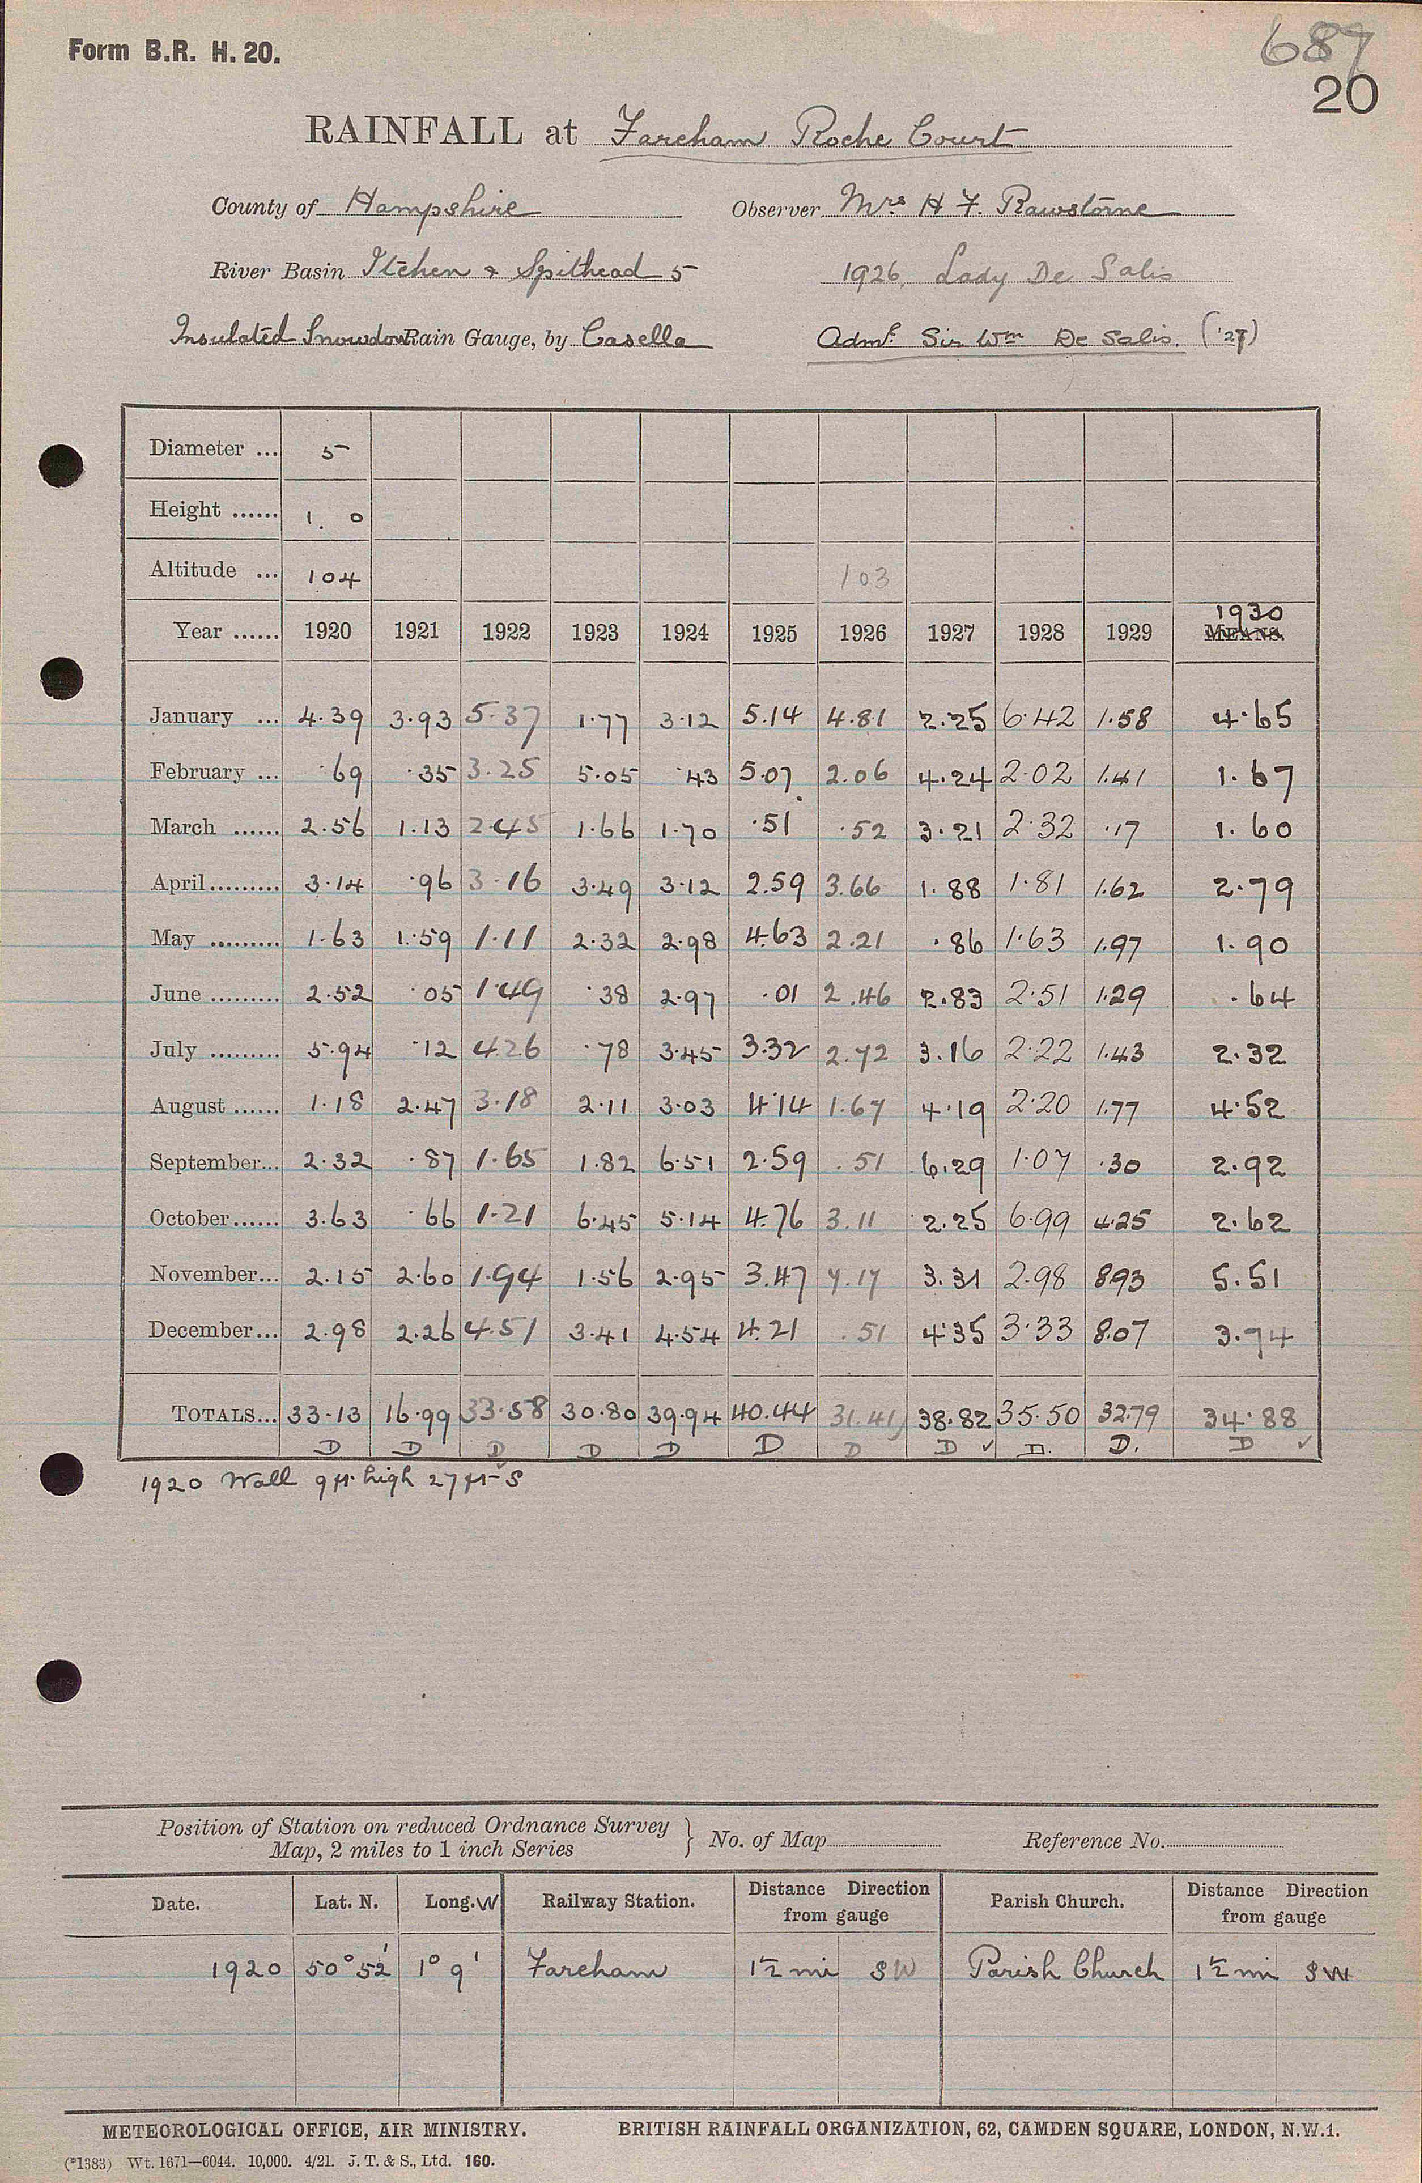 Form B.R. H. 20.
687
20
RAINFALL at Fareham Roche Court
County of Hampshire Observer Mrs H F. Rawstorne
River Basin Itchen & Spithead 5 1926, Lady De Salis
Insulated Snowdon Rain Gauge, by Casella Adml. Sir Wm De Salis. ('27)
Diameter ... 5
Height ...... 1. 0
Altitude ... 104 103
1930
Year ...... 1920 1921 1922 1923 1924 1925 1926 1927 1928 1929 MEANS.
January ... 4.39 3.93 5.37 1.77 3.12 5.14 4.81 2.25 6.42 1.58 4.65
February ... .69 .35 3.25 5.05 .43 5.07 2.06 4.24 2.02 1.41 1.67
March ...... 2.56 1.13 2.45 1.66 1.70 .51 .52 3.21 2.32 .17 1.60
April......... 3.14 .96 3.16 3.49 3.12 2.59 3.66 1.88 1.81 1.62 2.79
May ......... 1.63 1.59 1.11 2.32 2.98 4.63 2.21 .86 1.63 1.97 1.90
June ......... 2.52 .05 1.49 .38 2.97 .01 2.46 2.83 2.51 1.29 .64
July ......... 5.94 .12 4.26 .78 3.45 3.32 2.72 3.16 2.22 1.43 2.32
August ...... 1.18 2.47 3.18 2.11 3.03 4.14 1.67 4.19 2.20 1.77 4.52
September... 2.32 .87 1.65 1.82 6.51 2.59 .51 6.29 1.07 .30 2.92
October...... 3.63 .66 1.21 6.45 5.14 4.76 3.11 2.25 6.99 4.25 2.62
November... 2.15 2.60 1.94 1.56 2.95 3.47 7.17 3.31 2.98 8.93 5.51
December... 2.98 2.26 4.51 3.41 4.54 4.21 .51 4.35 3.33 8.07 3.74
TOTALS... 33.13 16.99 33.58 30.80 39.94 40.44 31.41 38.82 35.50 32.79 34.88
D D D D D D D D ✓ D. D. D ✓
1920 Wall 9 ft. high 27 ft S
Position of Station on reduced Ordnance Survey
Map, 2 miles to 1 inch Series } No. of Map Reference No.
Date. Lat. N. Long. W Railway Station. Distance Direction from gauge Parish Church. Distance Direction from gauge
1920 50° 52' 1° 9' Fareham 1½ mi SW Parish Church 1½ mi SW
METEOROLOGICAL OFFICE, AIR MINISTRY. BRITISH RAINFALL ORGANIZATION, 62, CAMDEN SQUARE, LONDON, N.W.1.
(*1383) Wt. 1671—6044. 10,000. 4/21. J. T. & S., Ltd. 160.